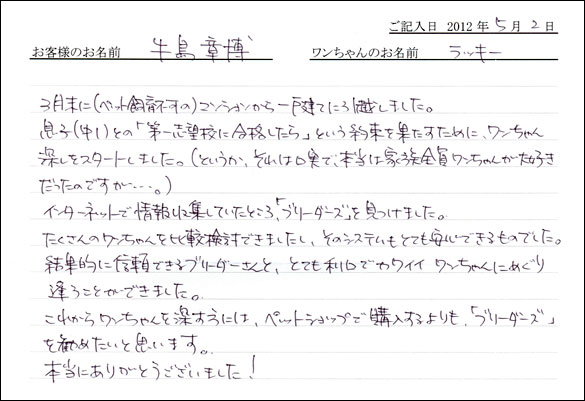 ご記入日 2012年5月2日
お客様のお名前 牛島章博 ワンちゃんのお名前 ラッキー
3月末に(ペット飼育不可の)マンションから一戸建てに引越しました。
息子(中1)との「第一志望校に合格したら」という約束を果たすために、ワンちゃん
探しをスタートしました。(というか、それは口実で、本当は家族全員ワンちゃんが大好き
だったのですが・・・。)
インターネットで情報収集していたところ、「ブリーダーズ」を見つけました。
たくさんのワンちゃんを比較検討できましたし、そのシステムもとても安心できるものでした。
結果的に信頼できるブリーダーさんと、とても利口でカワイイ ワンちゃんにめぐり
逢うことができました。
これからワンちゃんを探す方には、ペットショップで購入するよりも、「ブリーダーズ」
を勧めたいと思います。
本当にありがとうございました!